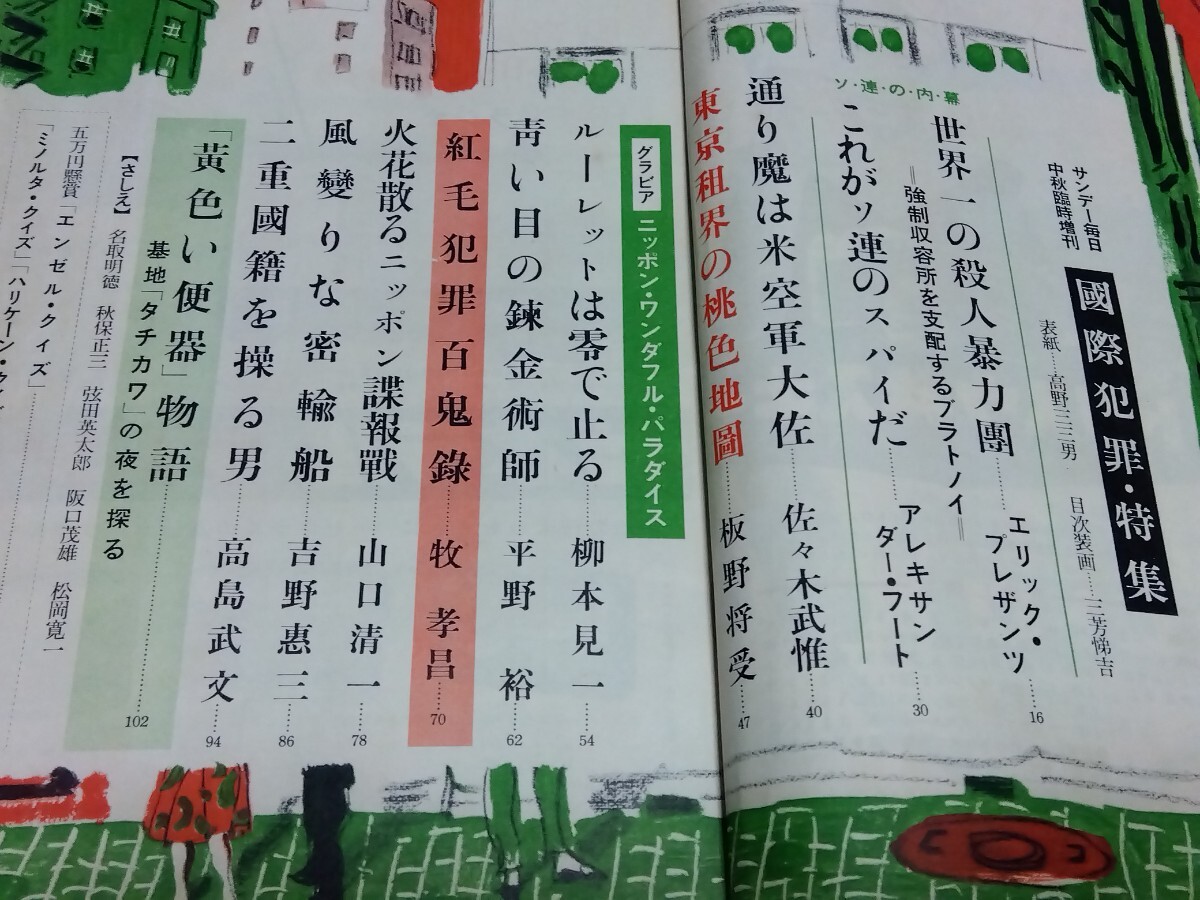 サンデー毎日
中秋臨時増刊
國際犯罪・特集
表紙……高野三三男
目次装画……三芳悌吉
世界一の殺人暴力團
=強制収容所を支配するブラトノイ=
エリック・
プレザンツ
16
ソ・連・の・内・幕
これがソ連のスパイだ
アレキサン
ダー・フート
30
通り魔は米空軍大佐
佐々木武惟
40
東京租界の桃色地圖
板野将受
47
グラビア
ニッポン・ワンダフル・パラダイス
ルーレットは零で止る
柳本見一
54
靑い目の鍊金術師
平野 裕
62
紅毛犯罪百鬼錄
牧 孝昌
70
火花散るニッポン諜報戰
山口清一
78
風變りな密輸船
吉野惠三
86
二重國籍を操る男
高島武文
94
「黄色い便器」物語
基地「タチカワ」の夜を探る
102
【さしえ】 名取明徳 秋保正三 弦田英太郎 阪口茂雄 松岡寛一
五万円懸賞「エンゼル・クイズ」
「ミノルタ・クイズ」「ハリケーン・